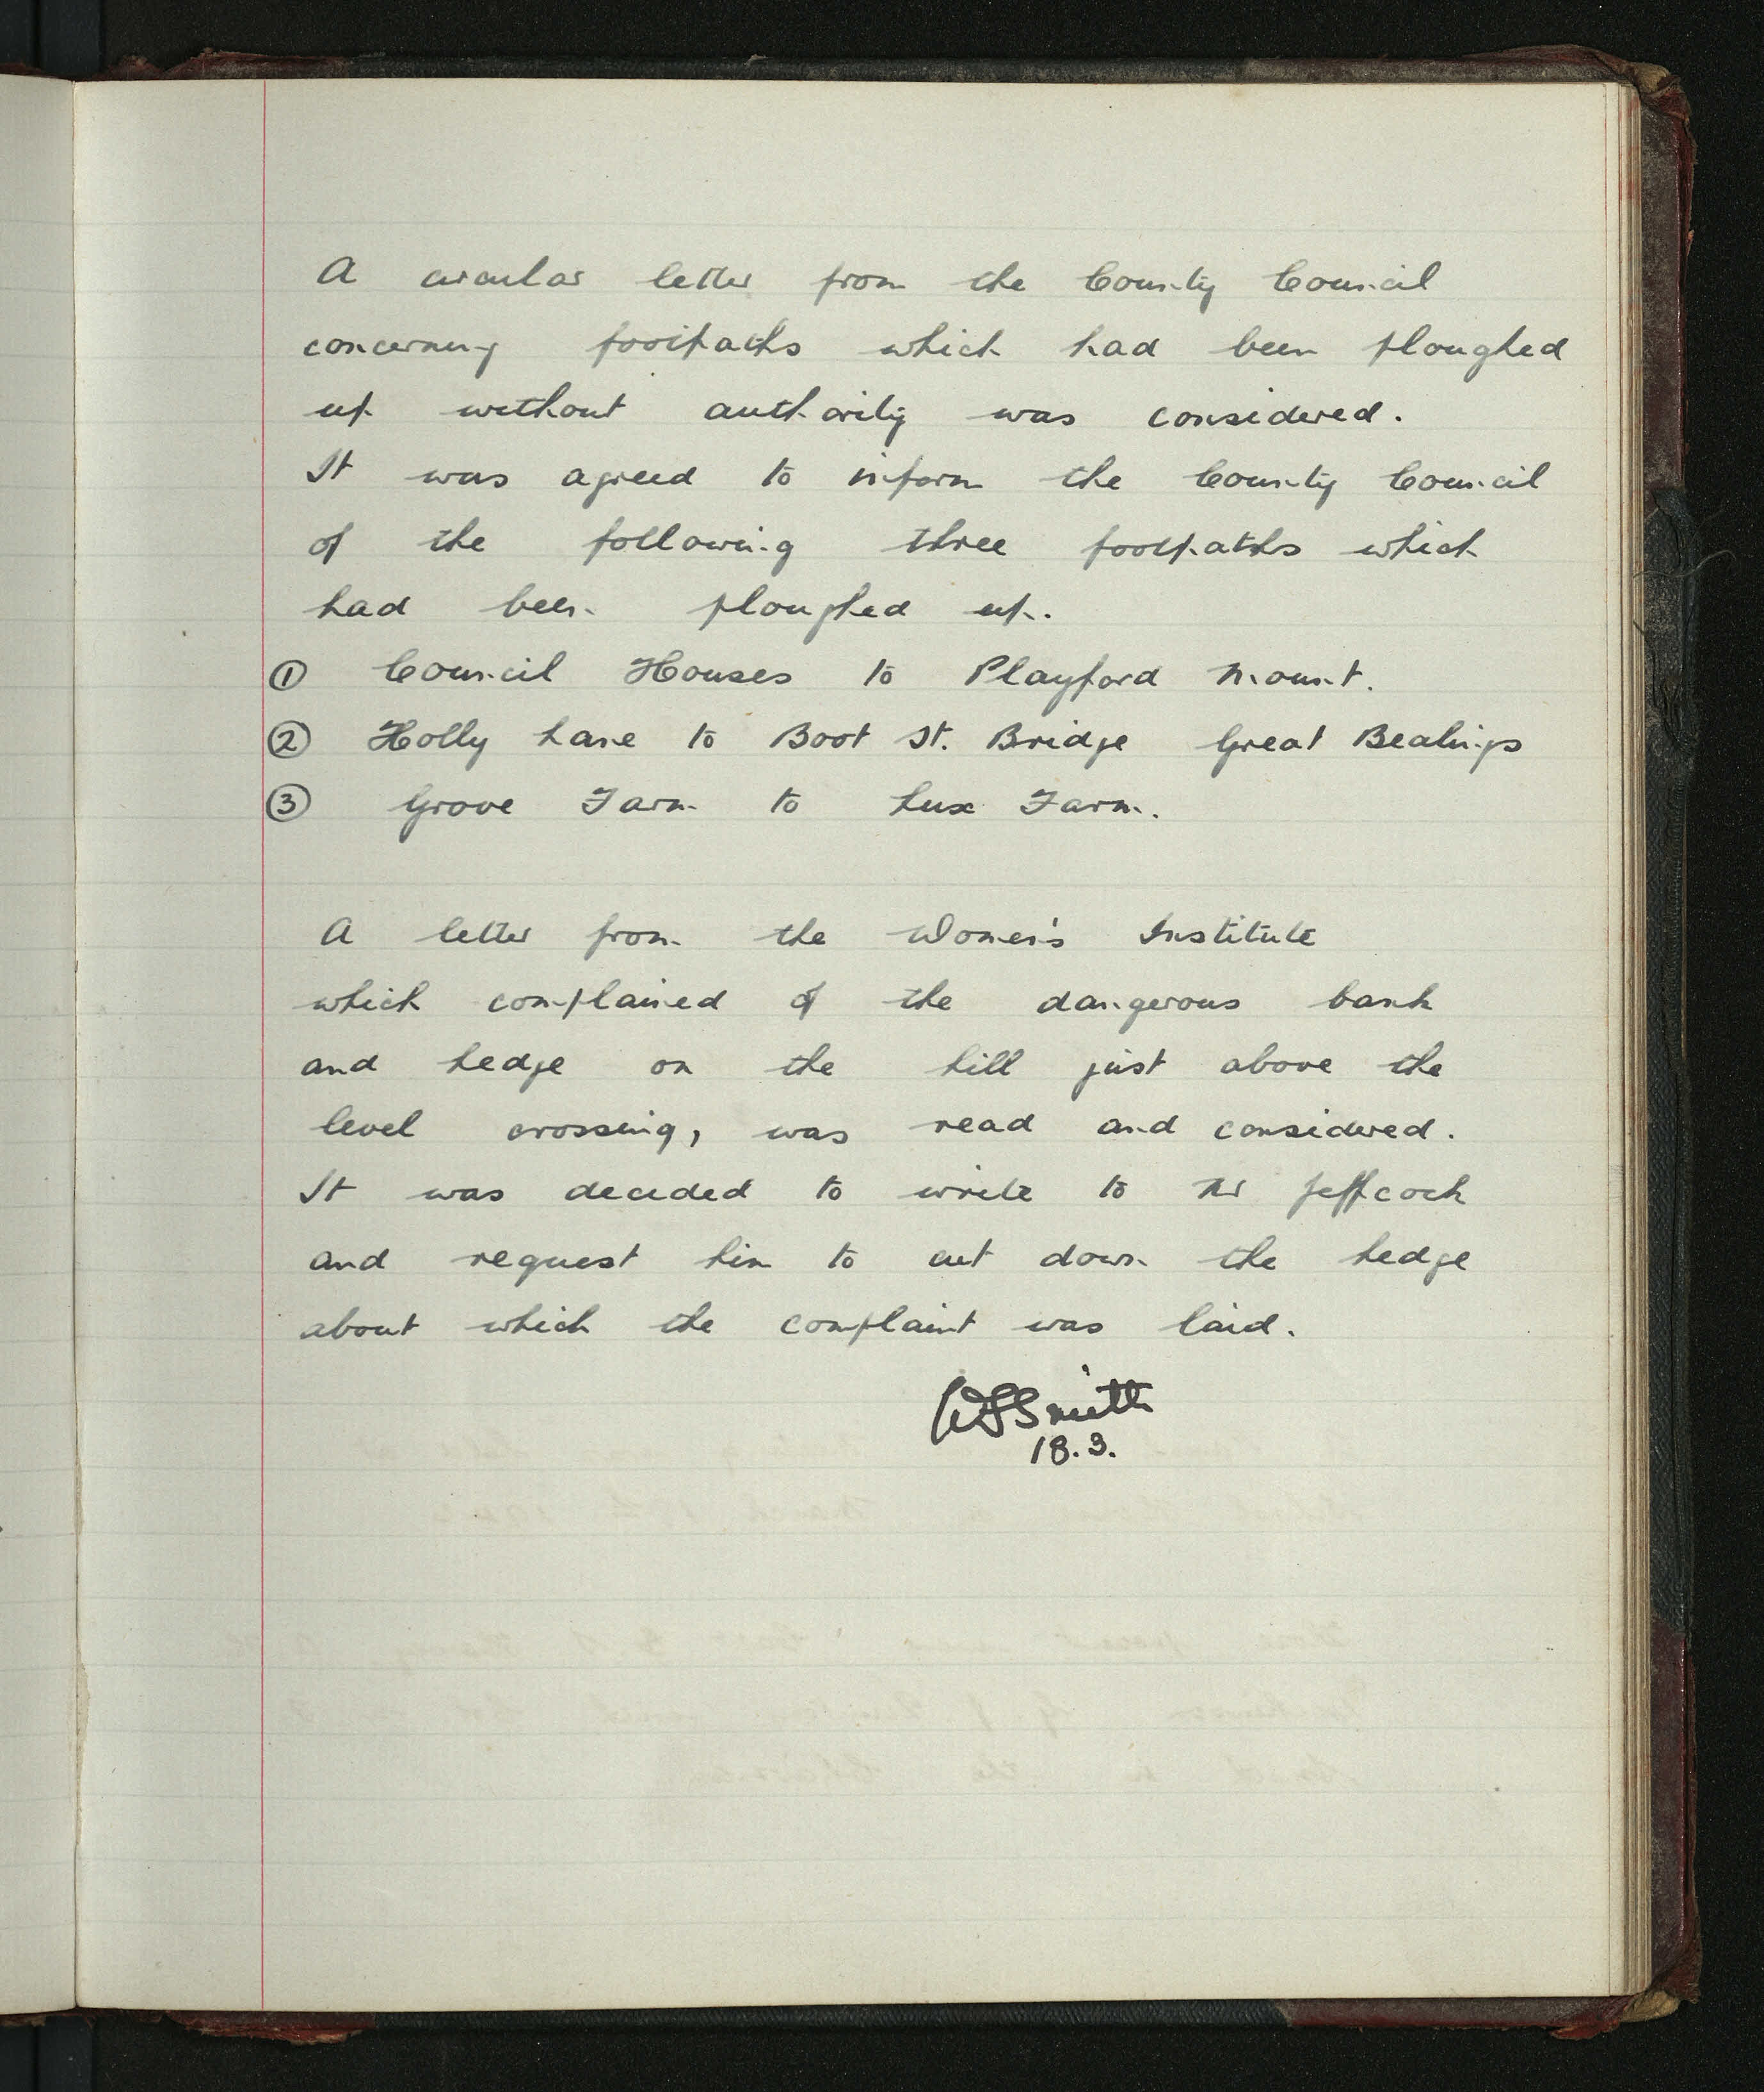 A circular letter from the County Council
concerning footpaths which had been ploughed
up without authority was considered.
It was agreed to inform the County Council
of the following three footpaths which
had been ploughed up.
① Council Houses to Playford Mount.
② Holly Lane to Boot St. Bridge Great Bealings
③ Grove Farm to Lux Farm.
A letter from the Women's Institute
which complained of the dangerous bank
and hedge on the hill just above the
level crossing, was read and considered.
It was decided to write to Mr Jeffcock
and request him to cut down the hedge
about which the complaint was laid.
Smith
18.3.